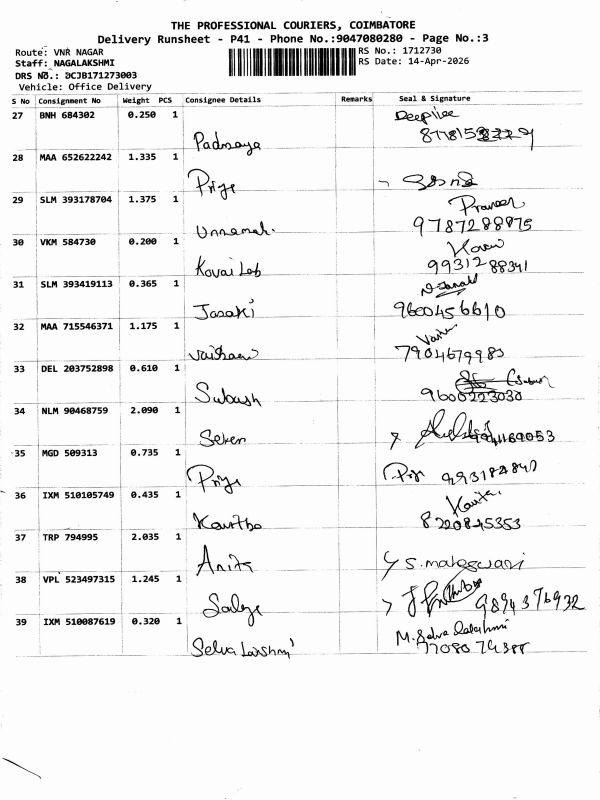 THE PROFESSIONAL COURIERS, COIMBATORE
Delivery Runsheet - P41 - Phone No.:9047080280 - Page No.:3
Route: VNR NAGAR
RS No.: 1712730
Staff: NAGALAKSHMI
RS Date: 14-Apr-2026
DRS No.: DCJB171273003
Vehicle: Office Delivery
S No Consignment No Weight PCS Consignee Details Remarks Seal & Signature
27 BNH 684302 0.250 1 Deepilee
Padmaya
28 MAA 652622242 1.335 1
Priya
29 SLM 393178704 1.375 1 Praveen
Unnamal. 9787288875
30 VKM 584730 0.200 1
Kovai Lab 9931288341
31 SLM 393419113 0.365 1
Janaki 9600456610
32 MAA 715546371 1.175 1
Vaishnavi 7904679983
33 DEL 203752898 0.610 1
Subash 9600223030
34 NLM 90468759 2.090 1
Selven
35 MGD 509313 0.735 1
Priya
36 IXM 510105749 0.435 1 Kavitha
Kavitha 8220845353
37 TRP 794995 2.035 1
Anita S. maheswari
38 VPL 523497315 1.245 1
9894376932
39 IXM 510087619 0.320 1 M. Selva Lakshmi
Selva Lakshmi